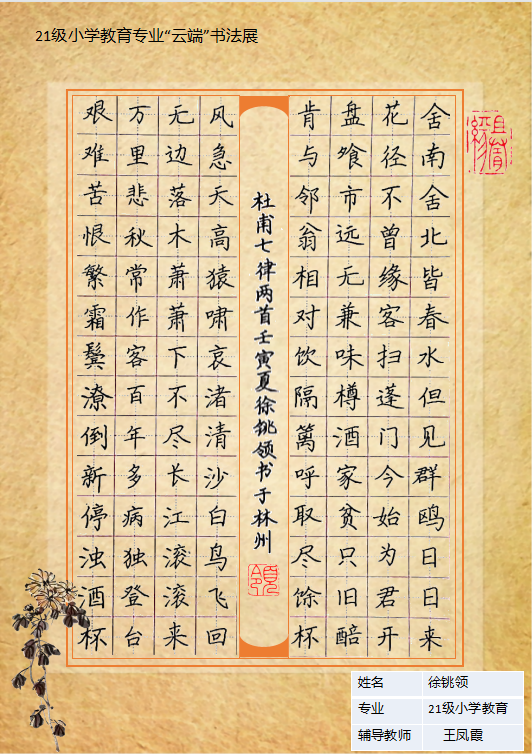 21级小学教育专业“云端”书法展
舍南舍北皆春水但见群鸥日日来
花径不曾缘客扫蓬门今始为君开
盘飧市远无兼味樽酒家贫只旧醅
肯与邻翁相对饮隔篱呼取尽馀杯
杜甫七律两首壬寅夏徐铫领书于林州
风急天高猿啸哀渚清沙白鸟飞回
无边落木萧萧下不尽长江滚滚来
万里悲秋常作客百年多病独登台
艰难苦恨繁霜鬓潦倒新停浊酒杯
姓名 徐铫领
专业 21级小学教育
辅导教师 王凤霞